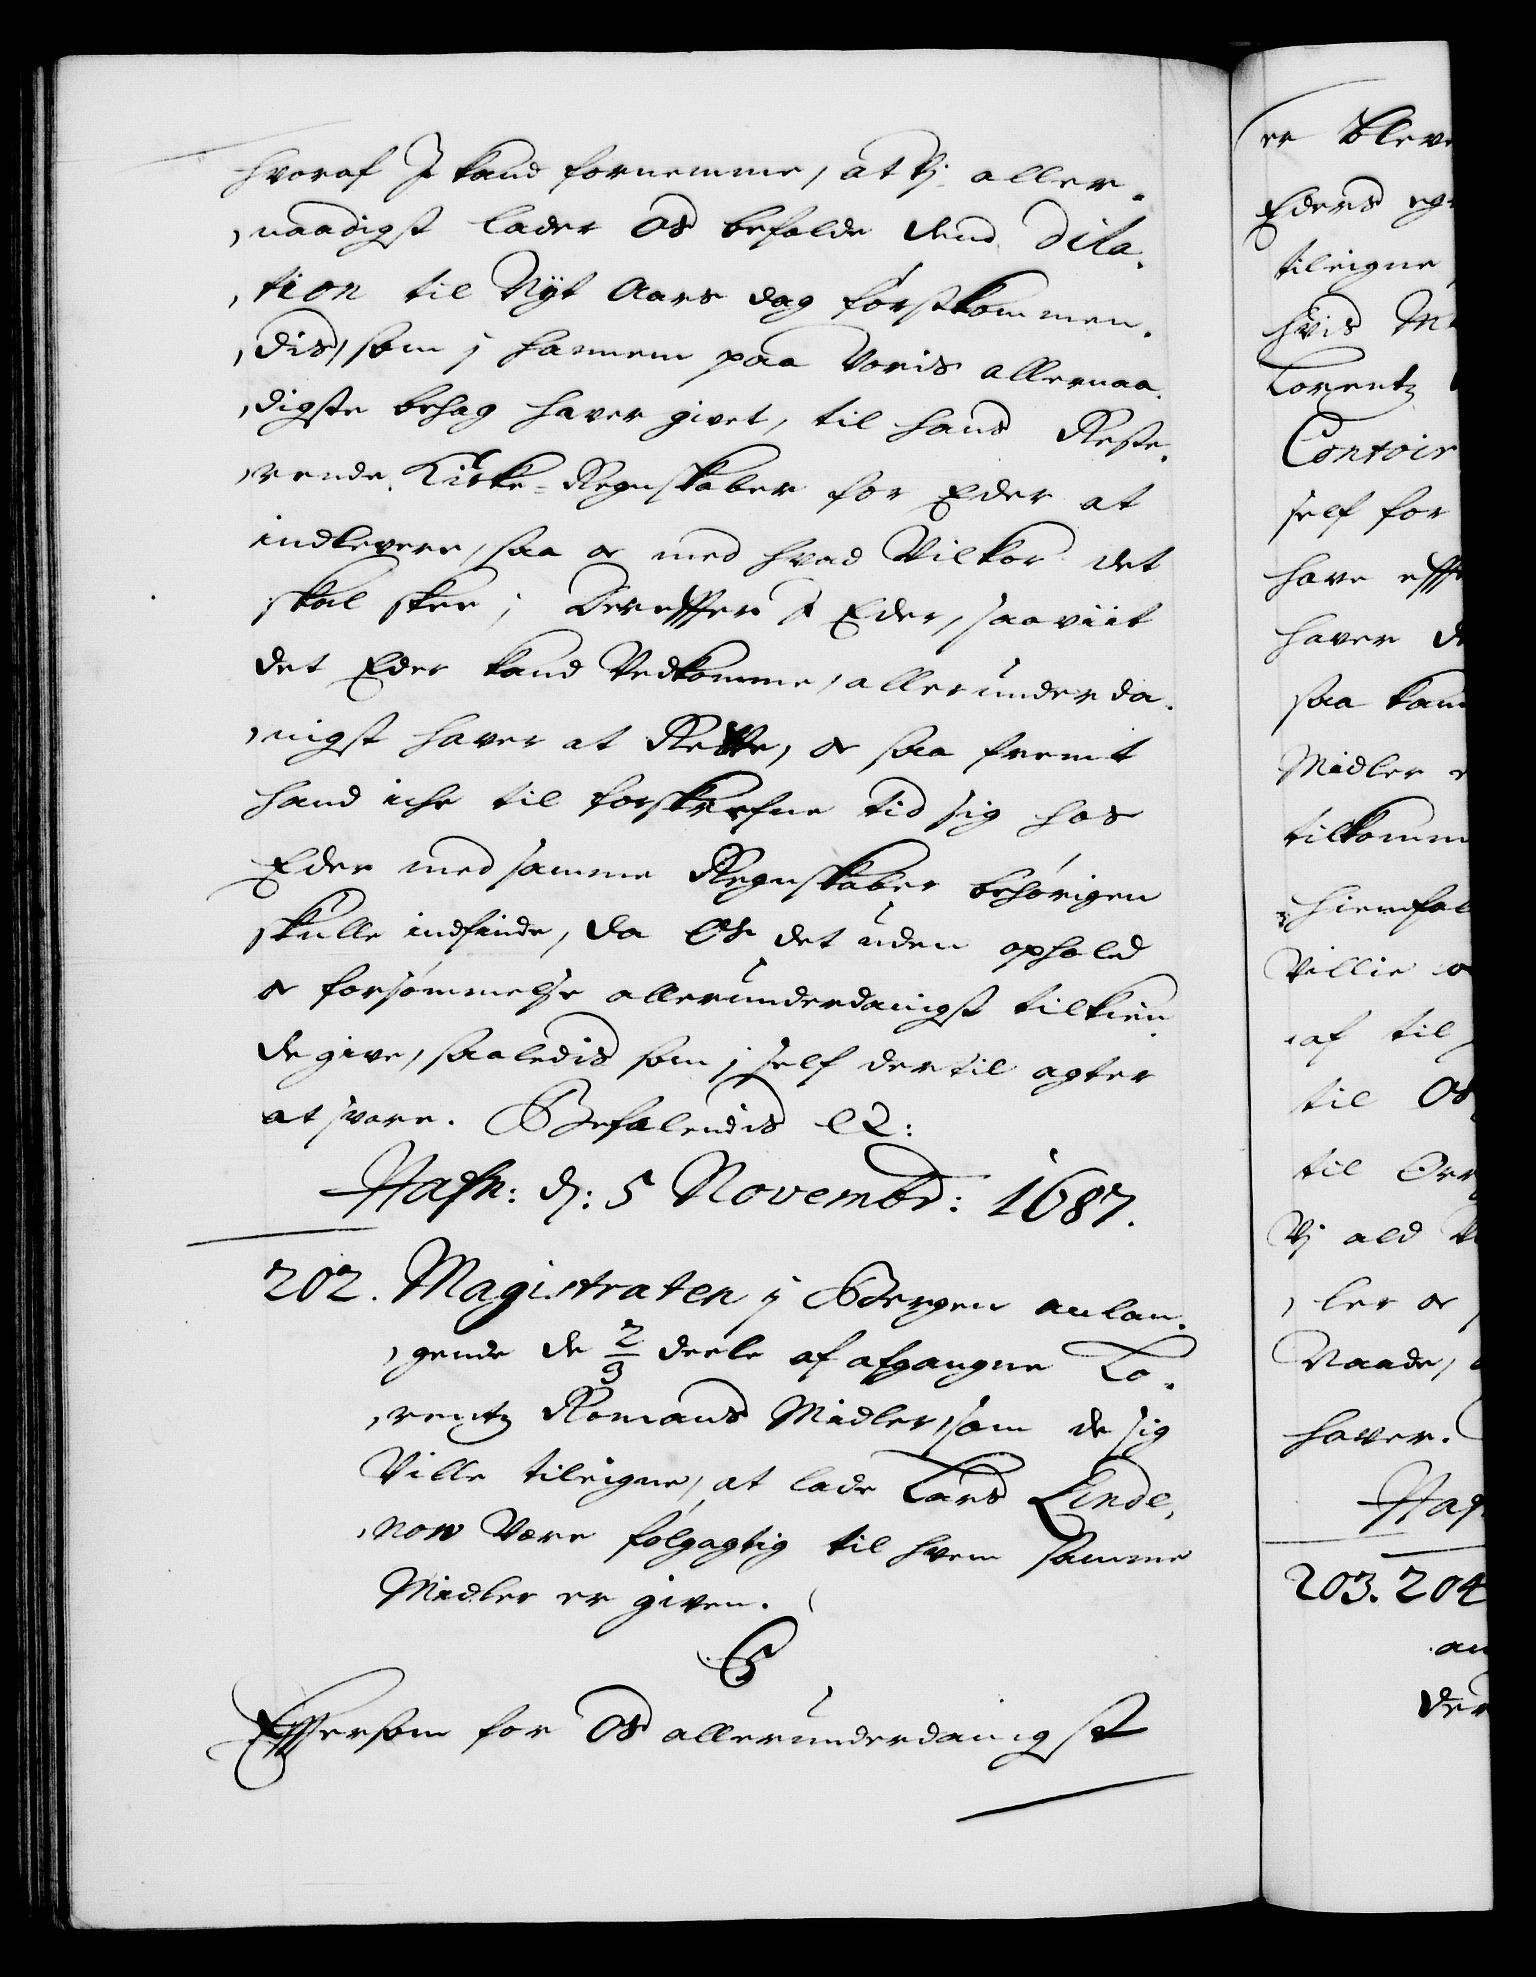 hvoraf I kand fornemme, at Vj aller-
naadigst lader Os befalde dend Dila-
tion til Nÿt Aars dag førstkommen-
dis, som j hannem paa Voris allernaa-
digste behag haver givet, til hans Reste-
rende Kirke-Regnskaber for Eder at
indlevere, saa og med hvad Vilkor det
skal skee; Derefter I Eder, saaviit
det Eder kand Vedkomme, allerunderda-
nigst haver at Rette, og saa fremt
hand iche til forskrefne tid sig hos
Eder med samme Regnskaber behørigen
skulle indfinde, da Os det uden ophold
og forsømmelse allerunderdanigst tilkien-
de give, saaledis som j self dertil agter
at svare. Befalendis etc:
Hafn: d: 5 Novembr: 1687.
202. Magistraten j Bergen anlan-
gende de 2/3 deele af afgangne Lo-
rentz Romans Midler, som de sig
Ville tileigne, at lade Lars Linde-
now Være følgagtig til hvem samme
Midler er given.
C5
Eftersom for Os allerunderdanigst
er bleve
Eders eg
tileigne
hvis M
Lorentz
Contoir
self for
have eff
haver d
saa kan
Midler
tilkomm
hierefal
Villie o
af til
til Os
til Ørr
Vj ald V
ler og
Naade,
haver.
Haf
203. 204
an
der